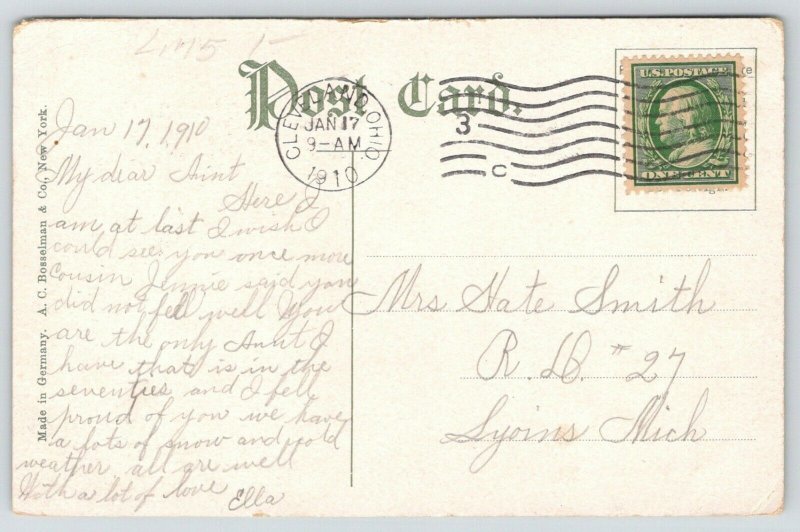 Post Card.
CLEVELAND OHIO
JAN 17
9-AM
1910
3
C
U.S. POSTAGE
ONE CENT
Made in Germany. A. C. Bosselman & Co., New York.
Jan 17, 1910
My dear Aint
Here I
am at last I wish I
could see you once more
Cousin Jennie said you
did not fell well You
are the only Aunt I
have that is in the
seventies and I fell
proud of you we have
a lots of snow and cold
weather all are well
With a lot of love
Ella
Mrs Kate Smith
R. D. # 27
Lyoins Mich